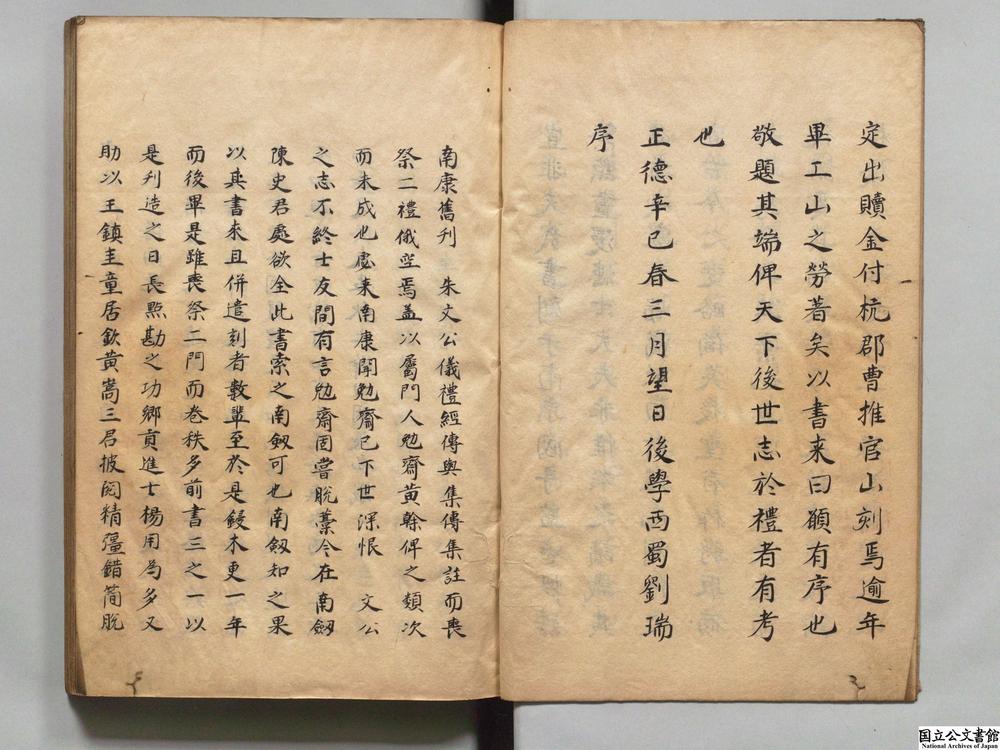 定出贖金付杭郡曹推官山刻焉逾年
畢工山之勞著矣以書来曰願有序也
敬題其端俾天下後世志於禮者有考
也
正德辛巳春三月望日後學西蜀劉瑞
序
南康舊刊　朱文公儀禮經傳與集傳集註而喪
祭二禮俄空焉盖以屬門人勉齋黃榦俾之類次
而未成也虙来南康聞勉齋已下世深恨　文公
之志不終士友間有言勉齋固嘗脫藁今在南劔
陳史君處欲全此書索之南劔可也南劔知之果
以其書來且併遣刻者數輩至於是鋟木更一年
而後畢是雖喪祭二門而卷秩多前書三之一以
是刋造之日長㸃勘之功鄉貢進士楊用為多又
助以王鎮圭童居欽黃嵩三君披閱精彊錯简脫
国立公文書館
National Archives of Japan